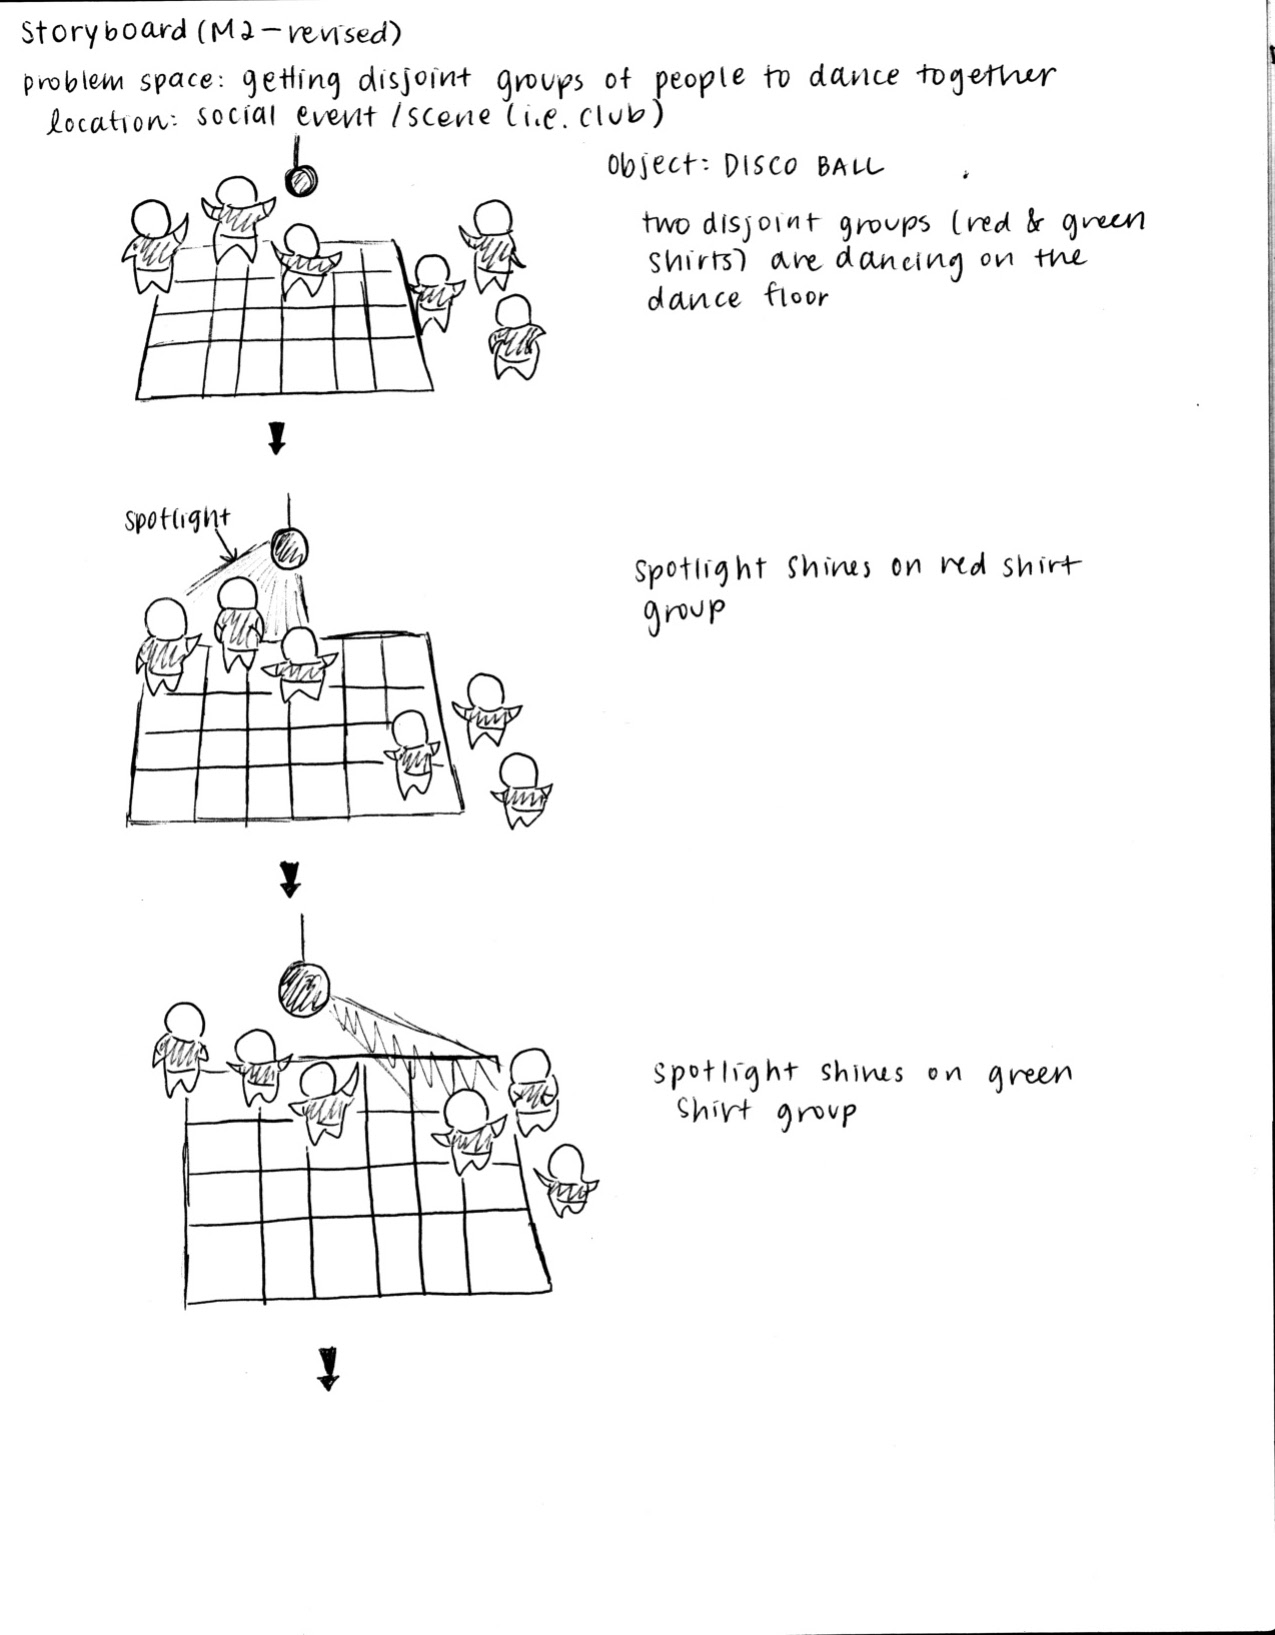 Storyboard (M2-revised)
problem space: getting disjoint groups of people to dance together
location: social event /scene (i.e. club)
object: DISCO BALL
two disjoint groups (red & green
shirts) are dancing on the
dance floor
spotlight
spotlight shines on red shirt
group
spotlight shines on green
shirt group